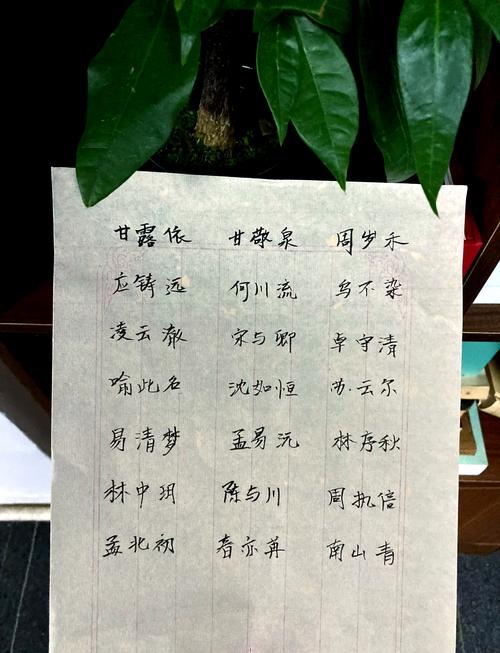 甘露依 甘敬泉 周岁禾
应铸远 何川流 乌不染
凌云澈 宋与卿 卓守清
喻此名 沈如恒 苏云尔
易清梦 孟易沅 林序秋
林中玥 陈与川 周执信
孟北初 春亦苒 南山青